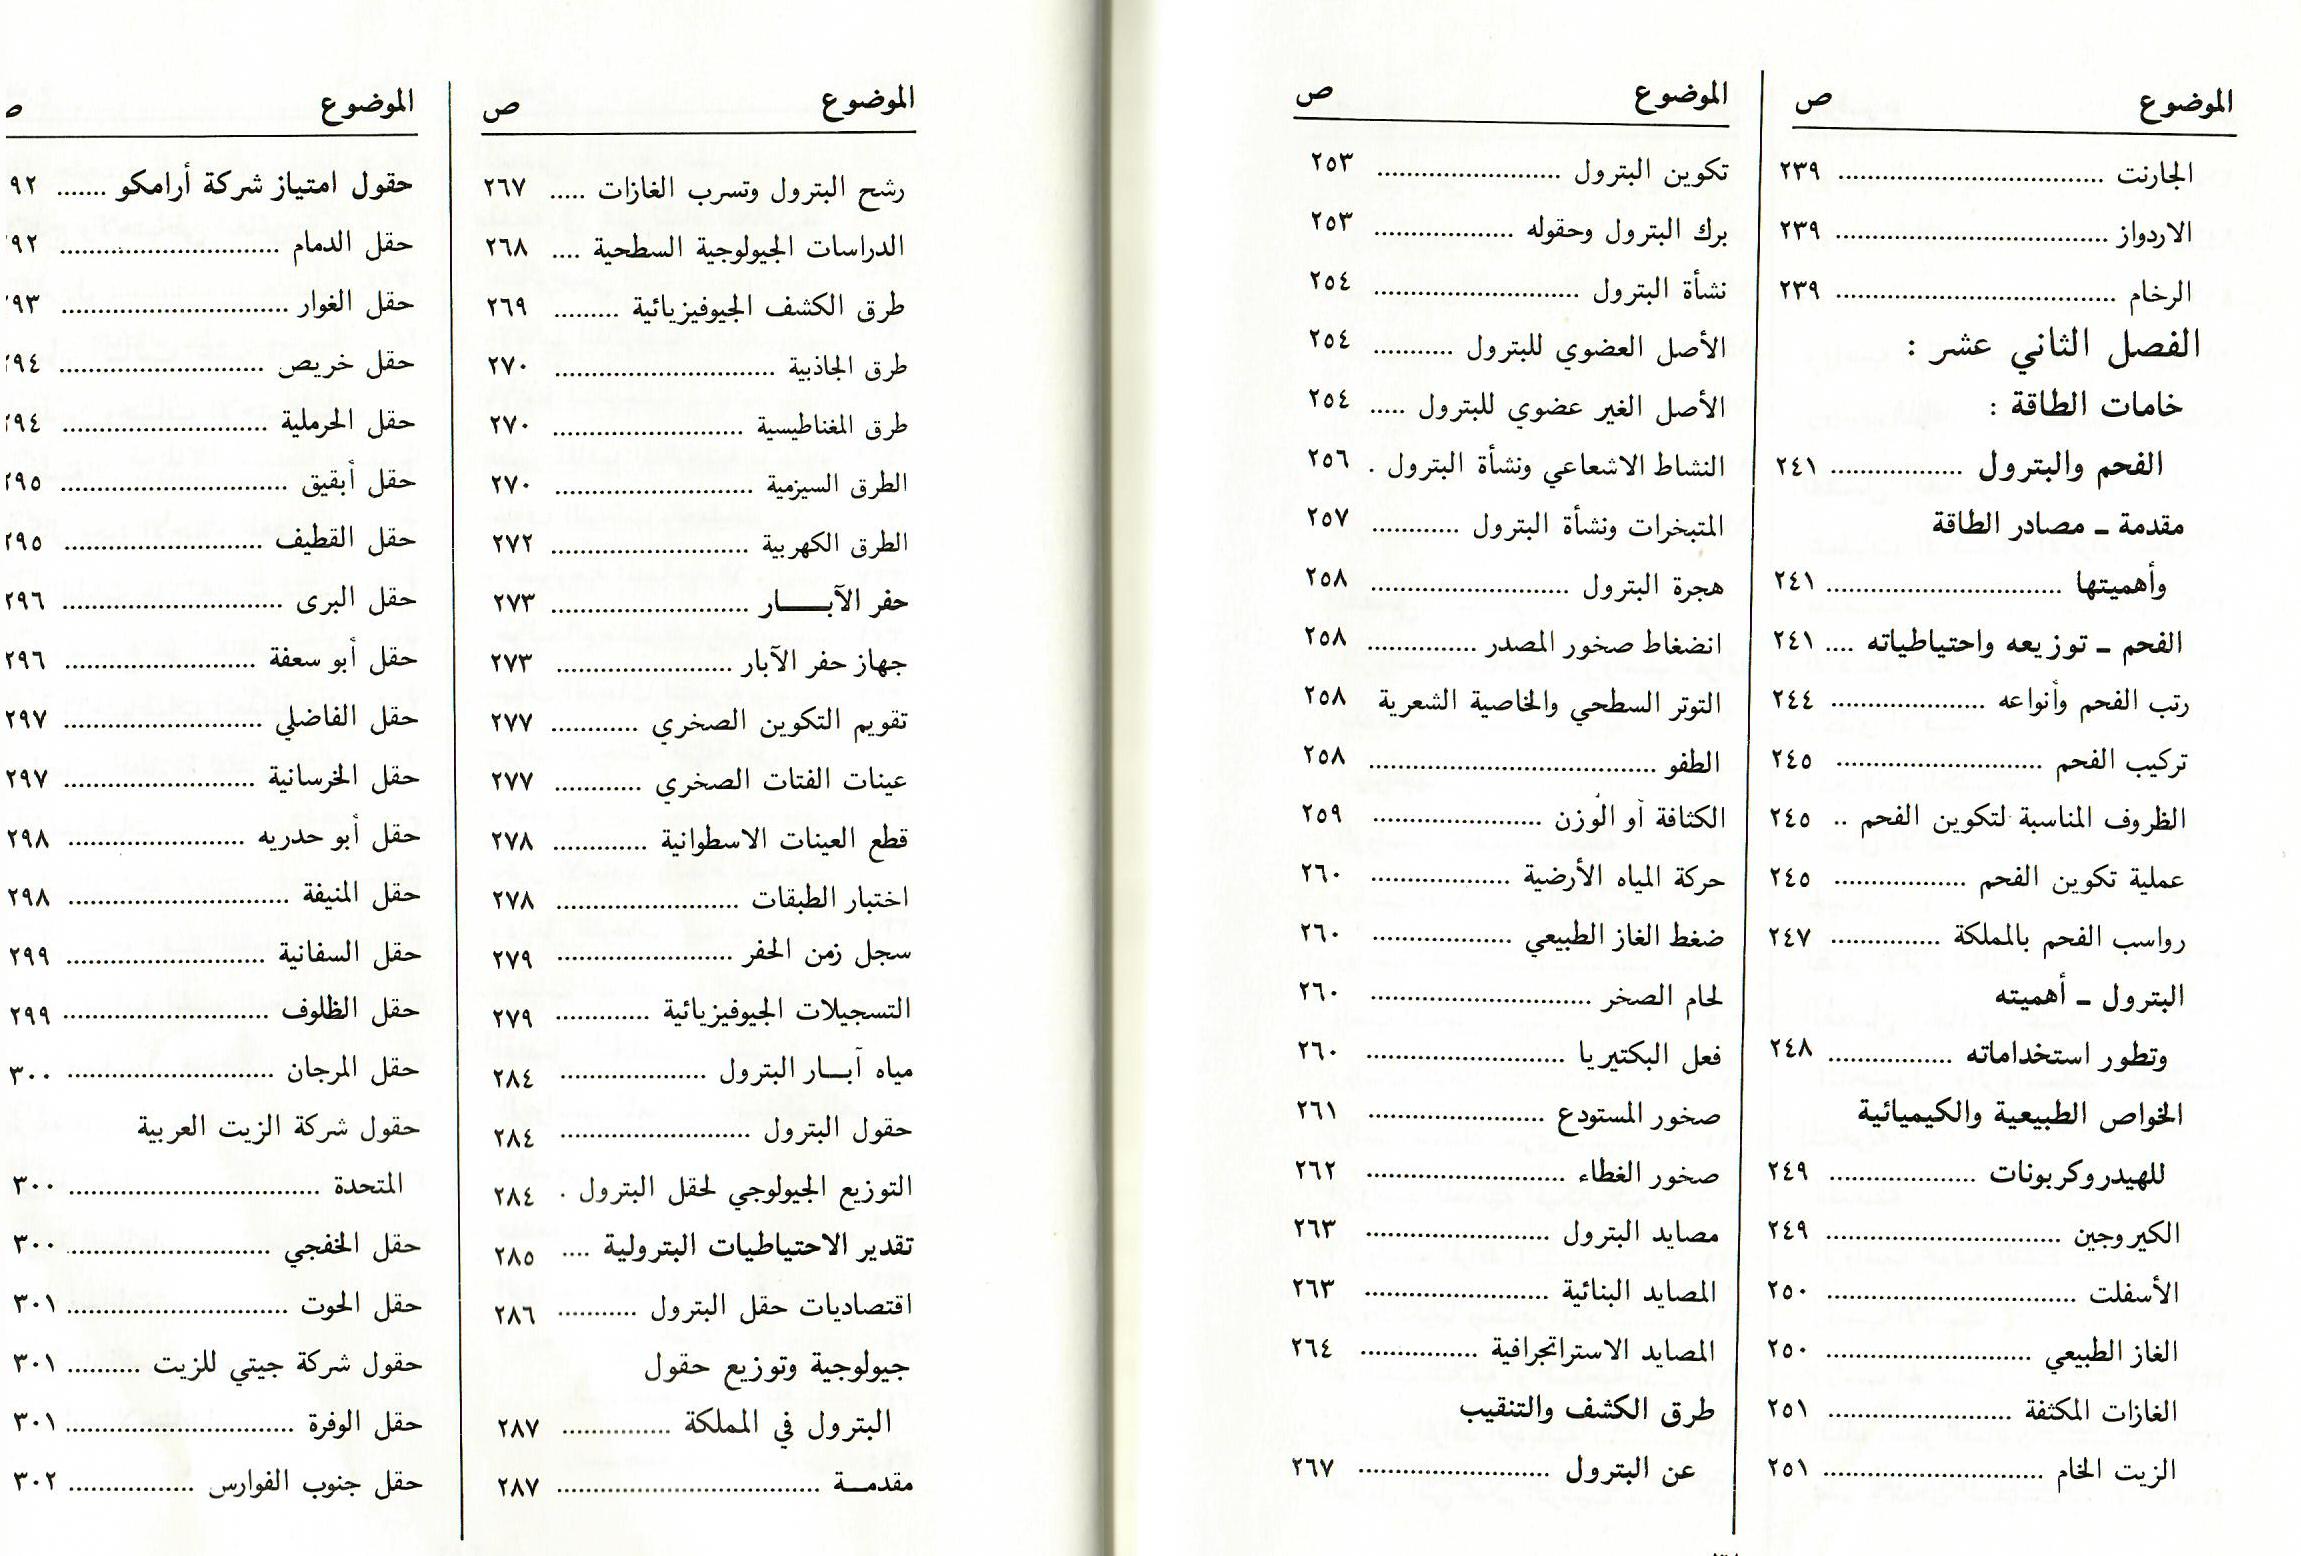 الموضوع ص
الجارنت ٢٣٩
الاردواز ٢٣٩
الرخام ٢٣٩
الفصل الثاني عشر :
خامات الطاقة :
الفحم والبترول ٢٤١
مقدمة ـ مصادر الطاقة
وأهميتها ٢٤١
الفحم ـ توزيعه واحتياطياته ٢٤١
رتب الفحم وأنواعه ٢٤٤
تركيب الفحم ٢٤٥
الظروف المناسبة لتكوين الفحم ٢٤٥
عملية تكوين الفحم ٢٤٥
رواسب الفحم بالمملكة ٢٤٧
البترول ـ أهميته
وتطور استخداماته ٢٤٨
الخواص الطبيعية والكيميائية
للهيدروكربونات ٢٤٩
الكيروجين ٢٤٩
الأسفلت ٢٥٠
الغاز الطبيعي ٢٥٠
الغازات المكثفة ٢٥١
الزيت الخام ٢٥١
الموضوع ص
تكوين البترول ٢٥٣
برك البترول وحقوله ٢٥٣
نشأة البترول ٢٥٤
الأصل العضوي للبترول ٢٥٤
الأصل الغير عضوي للبترول ٢٥٤
النشاط الاشعاعي ونشأة البترول ٢٥٦
المتبخرات ونشأة البترول ٢٥٧
هجرة البترول ٢٥٨
انضغاط صخور المصدر ٢٥٨
التوتر السطحي والخاصية الشعرية ٢٥٨
الطفو ٢٥٨
الكثافة أو الوزن ٢٥٩
حركة المياه الأرضية ٢٦٠
ضغط الغاز الطبيعي ٢٦٠
لحام الصخر ٢٦٠
فعل البكتيريا ٢٦٠
صخور المستودع ٢٦١
صخور الغطاء ٢٦٢
مصايد البترول ٢٦٣
المصايد البنائية ٢٦٣
المصايد الاستراتجرافية ٢٦٤
طرق الكشف والتنقيب
عن البترول ٢٦٧
الموضوع ص
رشح البترول وتسرب الغازات ٢٦٧
الدراسات الجيولوجية السطحية ٢٦٨
طرق الكشف الجيوفيزيائية ٢٦٩
طرق الجاذبية ٢٧٠
طرق المغناطيسية ٢٧٠
الطرق السيزمية ٢٧٠
الطرق الكهربية ٢٧٢
حفر الآبـــار ٢٧٣
جهاز حفر الآبار ٢٧٣
تقويم التكوين الصخري ٢٧٧
عينات الفتات الصخري ٢٧٧
قطع العينات الاسطوانية ٢٧٨
اختبار الطبقات ٢٧٨
سجل زمن الحفر ٢٧٩
التسجيلات الجيوفيزيائية ٢٧٩
مياه آبــار البترول ٢٨٤
حقول البترول ٢٨٤
التوزيع الجيولوجي لحقل البترول ٢٨٤
تقدير الاحتياطيات البترولية ٢٨٥
اقتصاديات حقل البترول ٢٨٦
جيولوجية وتوزيع حقول
البترول في المملكة ٢٨٧
مقدمــة ٢٨٧
الموضوع
حقول امتياز شركة أرامكو ٩٢
حقل الدمام ٩٢
حقل الغوار ٩٣
حقل خريص ٩٤
حقل الحرملية ٩٤
حقل أبقيق ٢٩٥
حقل القطيف ٢٩٥
حقل البرى ٢٩٦
حقل أبو سعفة ٢٩٦
حقل الفاضلي ٢٩٧
حقل الخرسانية ٢٩٧
حقل أبو حدريه ٢٩٨
حقل المنيفة ٢٩٨
حقل السفانية ٢٩٩
حقل الظلوف ٢٩٩
حقل المرجان ٣٠٠
حقول شركة الزيت العربية
المتحدة ٣٠٠
حقل الخفجي ٣٠٠
حقل الحوت ٣٠١
حقول شركة جيتي للزيت ٣٠١
حقل الوفرة ٣٠١
حقل جنوب الفوارس ٣٠٢